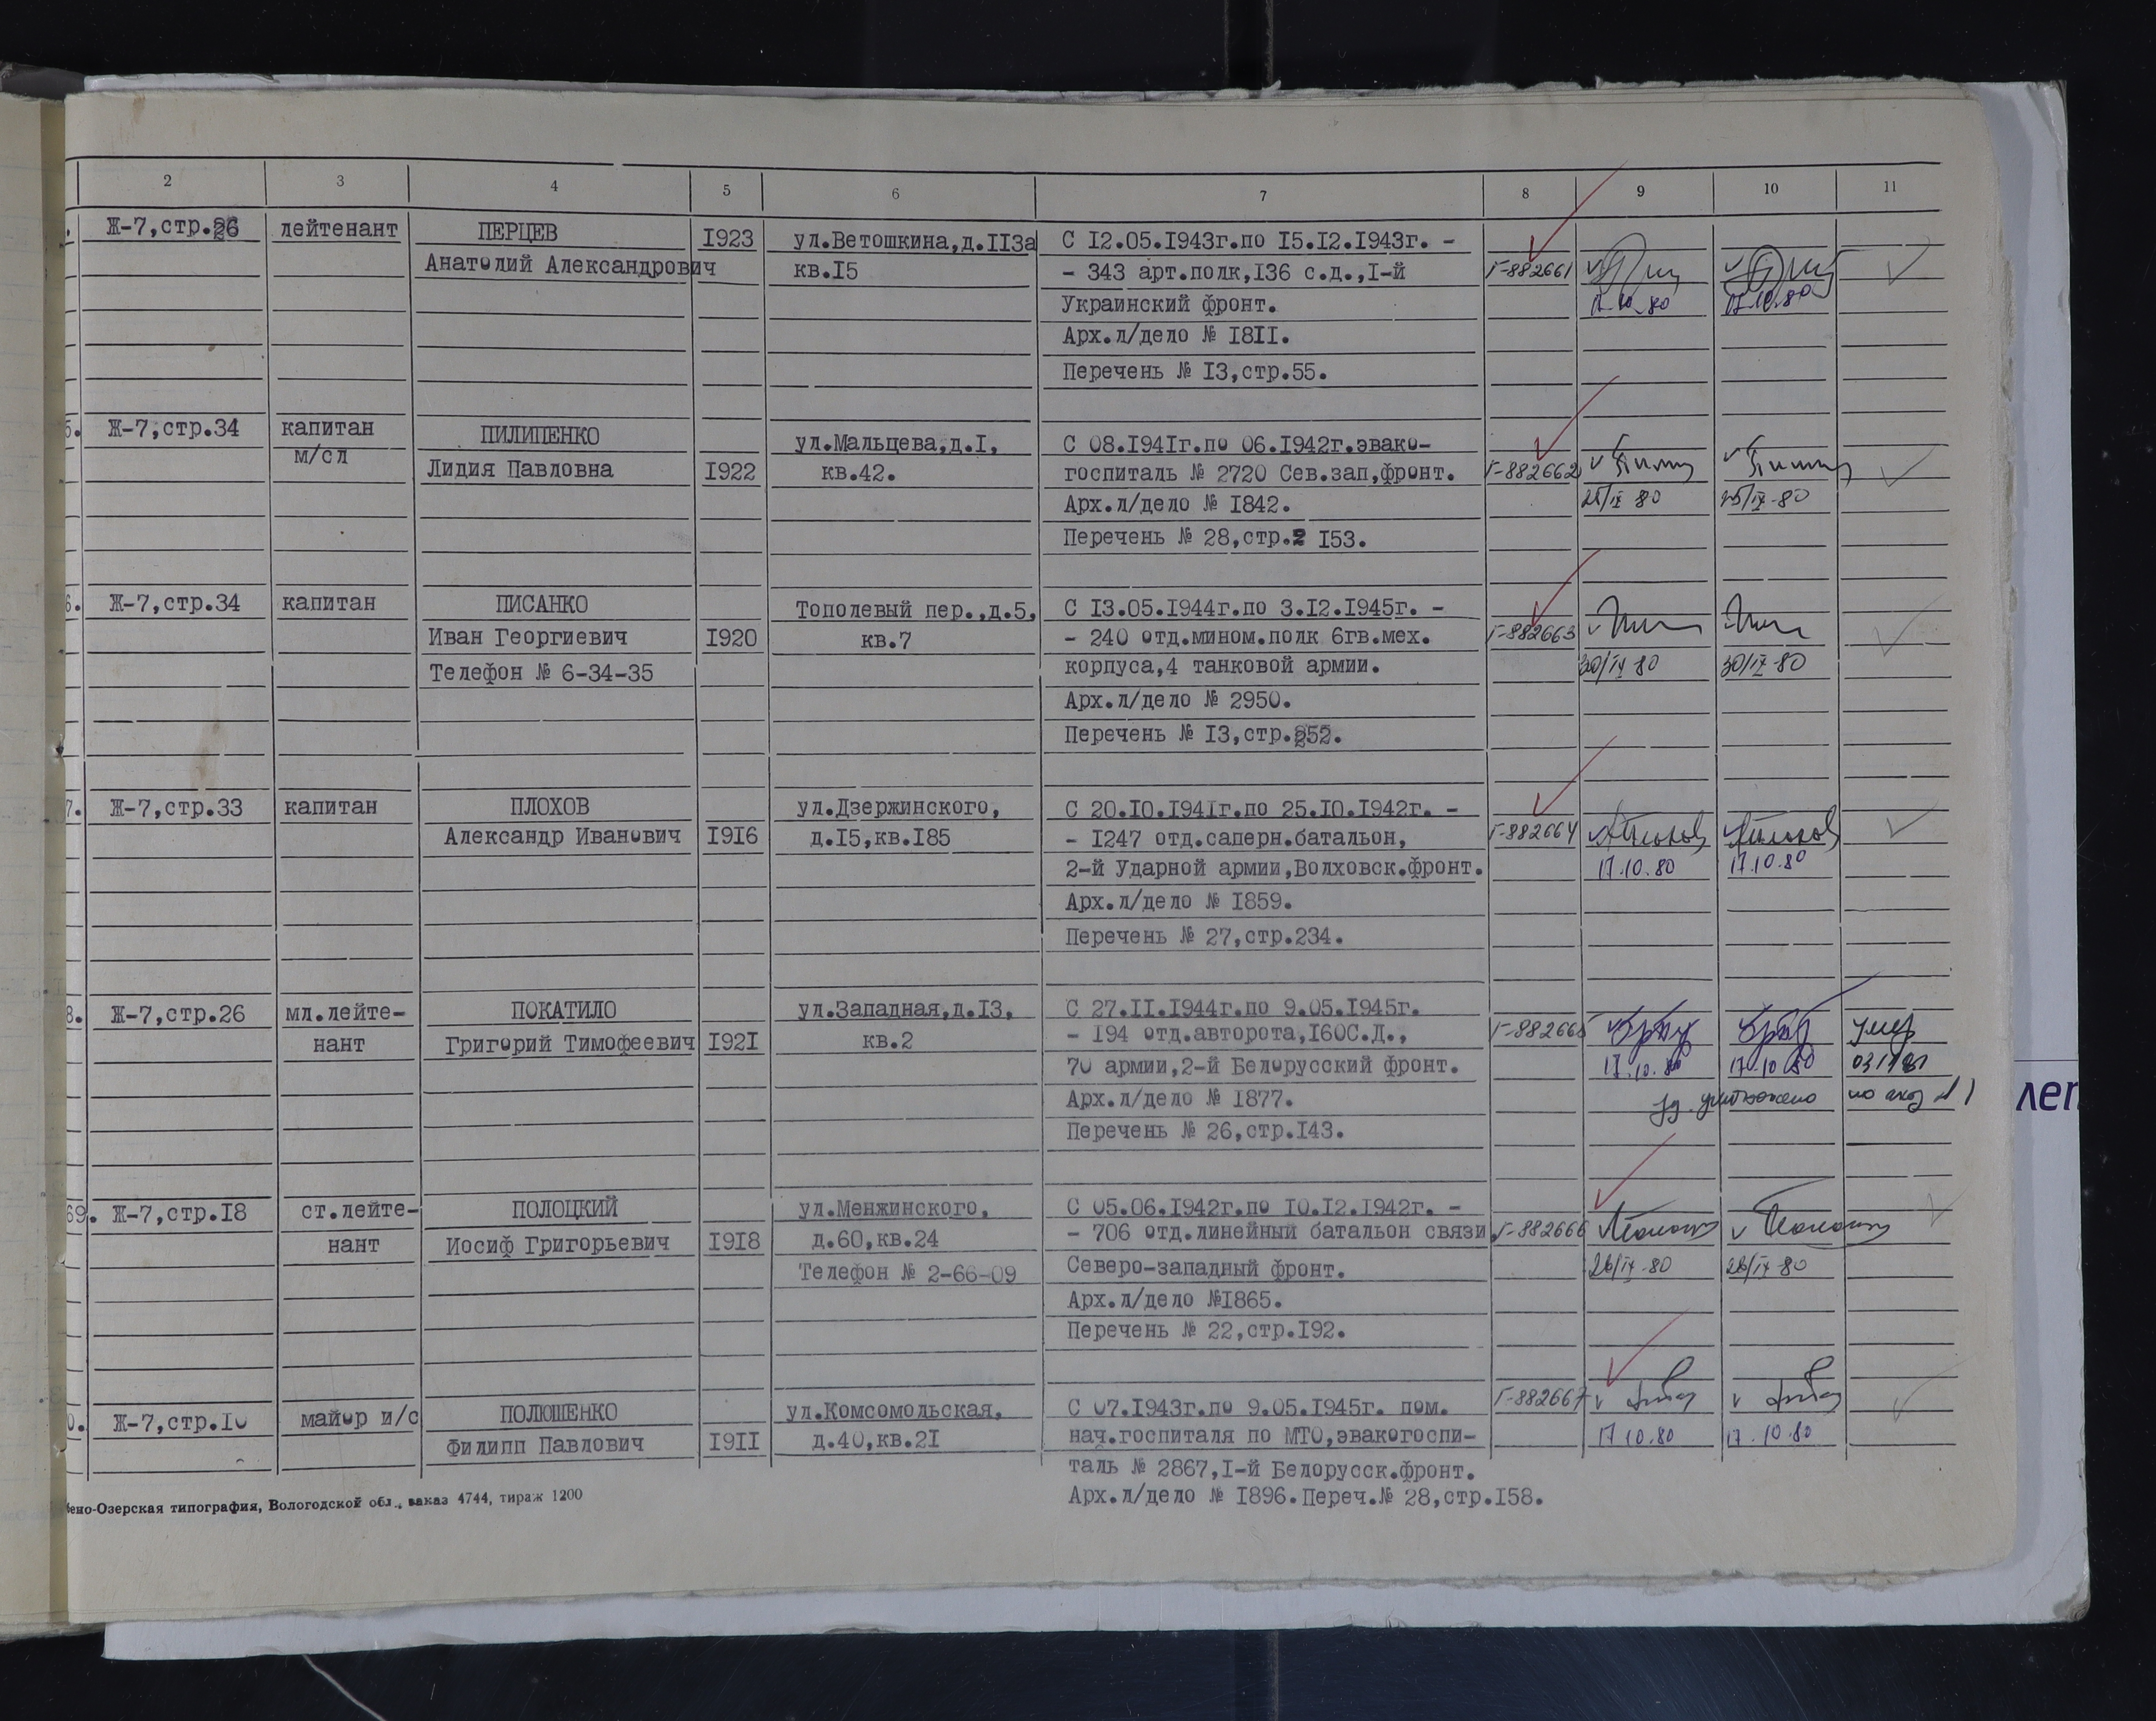 2 3 4 5 6 7 8 9 10 11
. Ж-7,стр.26 лейтенант ПЕРЦЕВ I923 ул.Ветошкина,д.II3а С I2.05.I943г.по I5.I2.I943г. -
Анатолий Александрович кв.I5 - 343 арт.полк,I36 с.д.,I-й Г-882661
Украинский фронт. 17.10.80 17.10.80
Арх.л/дело № I8II.
Перечень № I3,стр.55.
5. Ж-7,стр.34 капитан ПИЛИПЕНКО ул.Мальцева,д.I, С 08.I94Iг.по 06.I942г.эвако-
м/сл Лидия Павловна I922 кв.42. госпиталь № 2720 Сев.зап,фронт. Г-882662
Арх.л/дело № I842. 25/IX 80 25/IX-80
Перечень № 28,стр. I53.
6. Ж-7,стр.34 капитан ПИСАНКО Тополевый пер.,д.5, С I3.05.I944г.по 3.I2.I945г. -
Иван Георгиевич I920 кв.7 - 240 отд.мином.полк 6гв.мех. Г-882663
Телефон № 6-34-35 корпуса,4 танковой армии. 30/IX 80 30/IX-80
Арх.л/дело № 2950.
Перечень № I3,стр.252.
7. Ж-7,стр.33 капитан ПЛОХОВ ул.Дзержинского, С 20.I0.I94Iг.по 25.I0.I942г. -
Александр Иванович I9I6 д.I5,кв.I85 - I247 отд.саперн.батальон, Г-882664
2-й Ударной армии,Волховск.фронт. 17.10.80 17.10.80
Арх.л/дело № I859.
Перечень № 27,стр.234.
8. Ж-7,стр.26 мл.лейте- ПОКАТИЛО ул.Западная,д.I3, С 27.II.I944г.по 9.05.I945г.
нант Григорий Тимофеевич I92I кв.2 - I94 отд.авторота,I60С.Д., Г-882665 умер
70 армии,2-й Белорусский фронт. 17.10.80 17.10.80
Арх.л/дело № I877. уд. уничтожено по акту
Перечень № 26,стр.I43.
69. Ж-7,стр.I8 ст.лейте- ПОЛОЦКИЙ ул.Менжинского, С 05.06.I942г.по I0.I2.I942г. -
нант Иосиф Григорьевич I9I8 д.60,кв.24 - 706 отд.линейный батальон связи, Г-882666
Телефон № 2-66-09 Северо-западный фронт. 26/IX-80 26/IX-80
Арх.л/дело №I865.
Перечень № 22,стр.I92.
0. Ж-7,стр.I0 майор и/с ПОЛЮШЕНКО ул.Комсомольская, С 07.I943г.по 9.05.I945г. пом. Г-882667
Филипп Павлович I9II д.40,кв.2I нач.госпиталя по МТО,эвакогоспи- 17 10.80 17.10.80
таль № 2867,I-й Белорусск.фронт.
Арх.л/дело № I896.Переч.№ 28,стр.I58.
бено-Озерская типография, Вологодской обл., заказ 4744, тираж 1200
леп